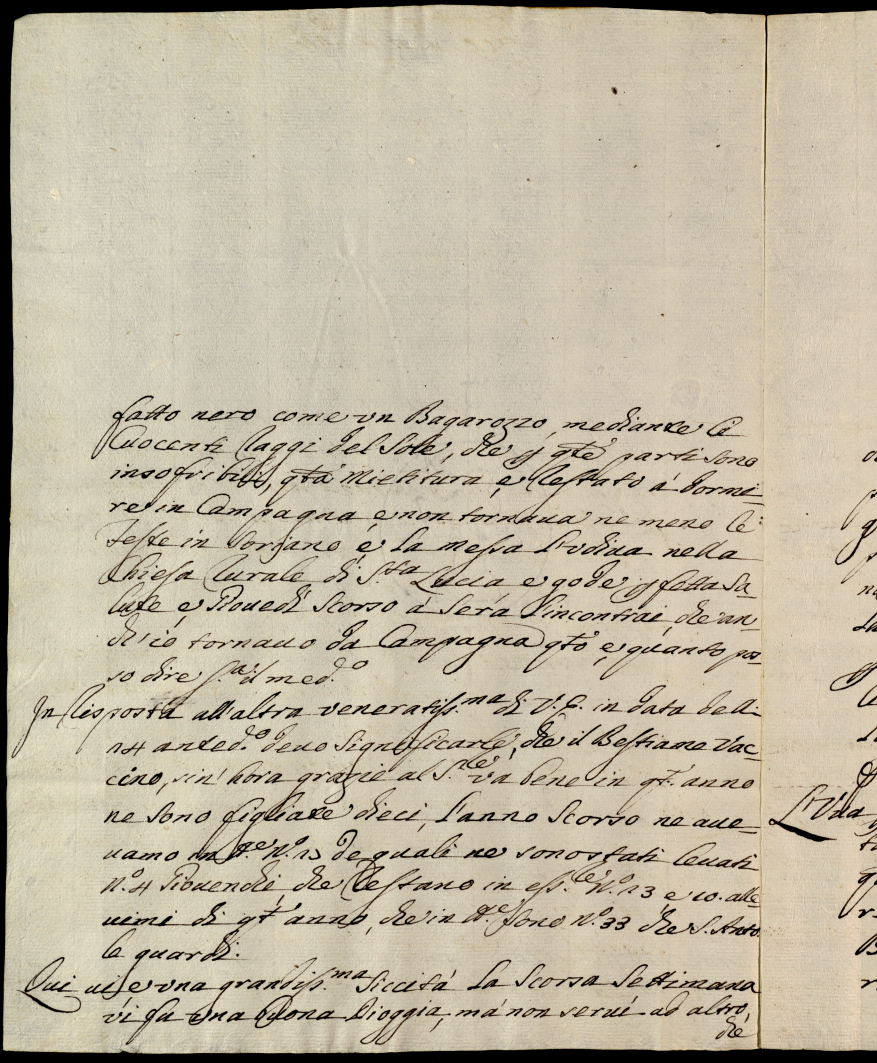 fatto nero come un Bagarozzo, mediante li
Cuocenti Raggi del Sole, che p qte parti sono
insofribili, qta Mietitura è Restato à dormi-
re in Campagna, e non tornava ne meno le
Feste in Soriano, e la Messa l'udiva nella
Chiesa Rurale di Sta Lucia e gode pfetta Sa-
lute, e Giovedì Scorso à Sera l'incontrai che an-
ch'io tornavo da Campagna qto è, quanto pos-
so dire il medo
In Risposta all'altra veneratissma di V. E. in data delli
14 anted.o devo Significarle, che il Bestiame Vac-
cino, sin'hora grazie al S.re va bene in qt' anno
ne sono figliate dieci, l'anno Scorso ne ave-
vamo in N.o de quali ne sono stati levati
N.o 4 Giovenchi, che Restano in N.o 13 e 10. alle-
vimi di qt' anno, che in sono N.o 33 che S. Anto.
le guardi.
Qui vi è una grandissma Siccità La Scorsa Settimana
vi fu una buona Pioggia, mà non servì ad altro,
che